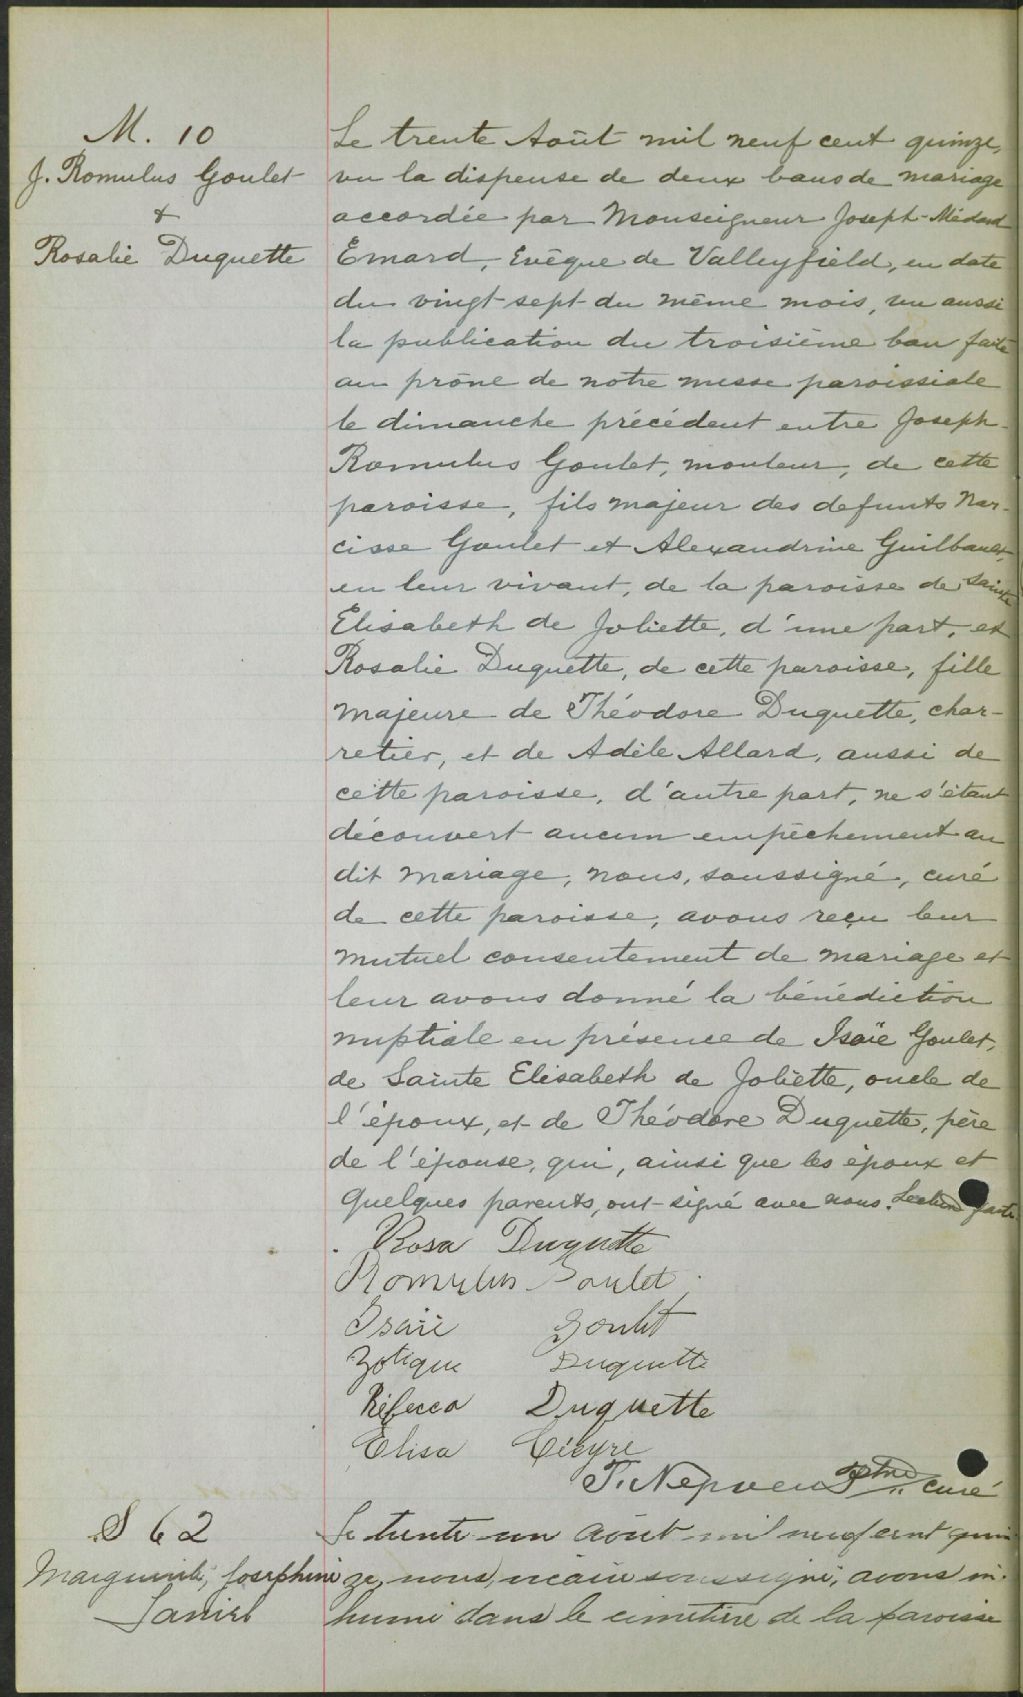 M. 10
J. Romulus Goulet
&
Rosalie Duquette
Le trente Août mil neuf cent quinze,
vu la dispense de deux bans de mariage
accordée par Monseigneur Joseph-Médard
Emard, Evêque de Valleyfield, en date
du vingt-sept du même mois, vu aussi
la publication du troisième ban faite
au prône de notre messe paroissiale
le dimanche précédent entre Joseph-
Romulus Goulet, mouleur, de cette
paroisse, fils majeur des defunts Nar-
cisse Goulet et Alexandrine Guilbault,
en leur vivant, de la paroisse de Sainte
Elisabeth de Joliette, d'une part, et
Rosalie Duquette, de cette paroisse, fille
majeure de Théodore Duquette, char-
retier, et de Adèle Allard, aussi de
cette paroisse, d'autre part, ne s'étant
découvert aucun empêchement au
dit mariage, nous, soussigné, curé
de cette paroisse, avons reçu leur
mutuel consentement de mariage et
leur avons donné la bénédiction
nuptiale en présence de Isaïe Goulet,
de Sainte Elisabeth de Joliette, oncle de
l'époux, et de Théodore Duquette, père
de l'épouse, qui, ainsi que les époux et
quelques parents, ont signé avec nous. Lecture faite.
Rosa Duquette
Romulus Goulet
Isaïe Goulet
Zotique Duquette
Rébecca Duquette
Elisa
T. Nepveu Ptre curé
S 62
Marguerite, Josephine
Le trente-un août mil neuf cent quin
ze, nous, vicaire soussigné, avons in-
humé dans le cimetière de la paroisse